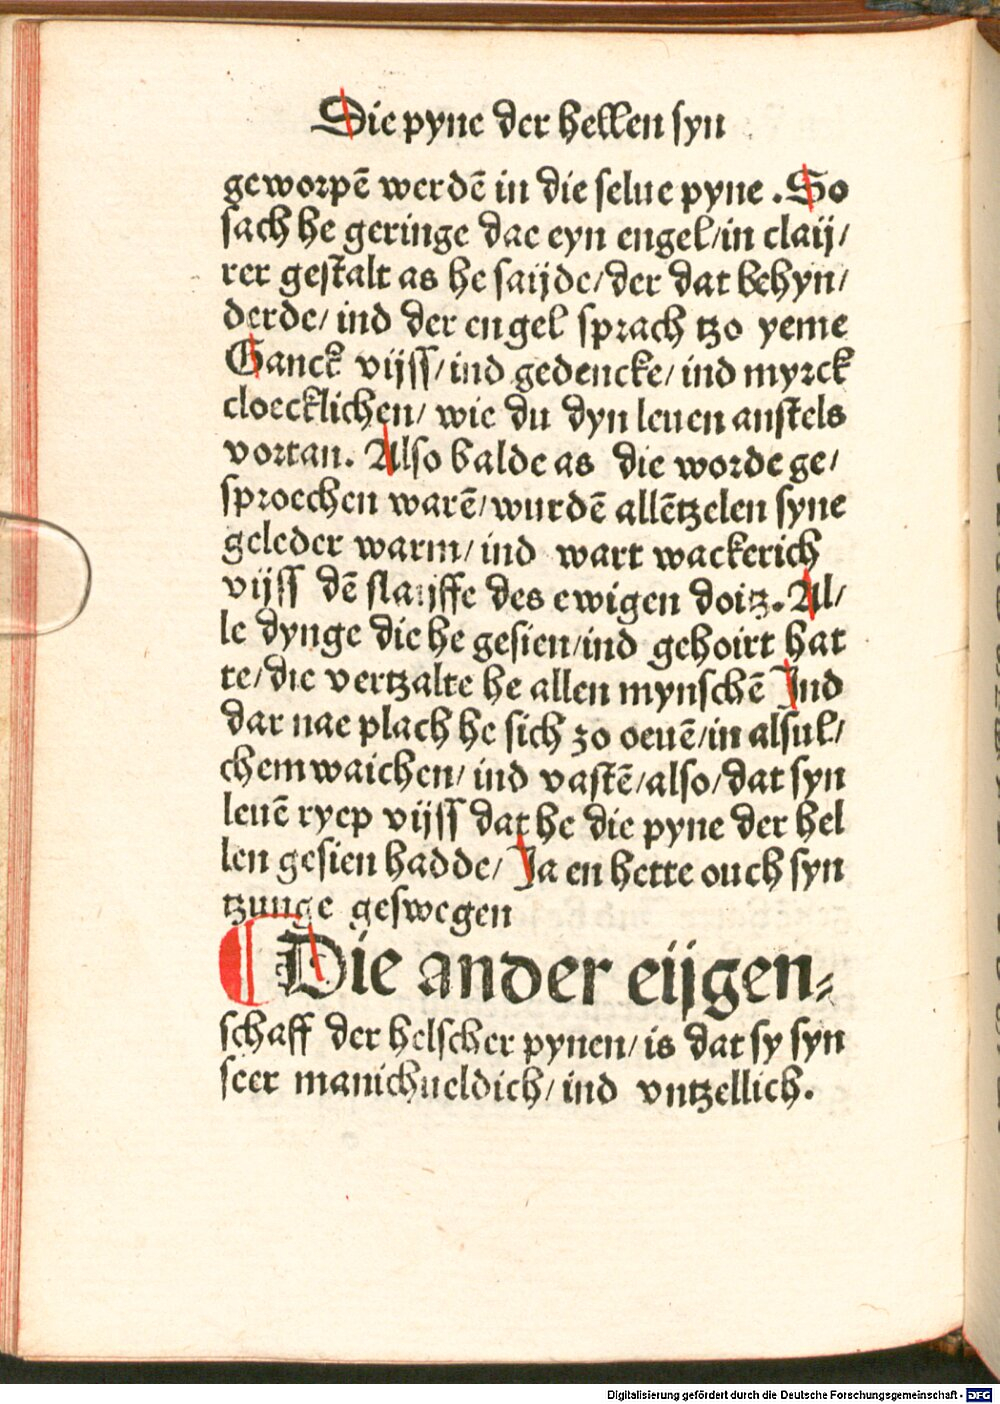 Die pyne der hellen syn
geworpē werdē in die selue pyne . So
sach he geringe dae eyn engel/in claij/
rer gestalt as he saijde/der dat behyn/
derde/ ind der engel sprach tzo yeme
Ganck vijss/ind gedencke/ind myrck
cloecklichen/ wie du dyn leuen anstels
vortan. Also balde as die worde ge/
sproechen warē/wurdē allētzelen syne
geleder warm/ind wart wackerich
vijss dē slaijffe des ewigen doitz. Al/
le dynge die he gesien/ind gehoirt hat
te/die vertzalte he allen mynschē Ind
dar nae plach he sich zo oeuē/in alsul/
chem waichen/ ind vastē/also/dat syn
leuē ryep vijss dat he die pyne der hel
len gesien hadde/ Ja en hette ouch syn
tzunge geswegen
Die ander eijgen⸗
schaff der helscher pynen/is dat sy syn
seer manichueldich/ind vntzellich.
Digitalisierung gefördert durch die Deutsche Forschungsgemeinschaft - DFG